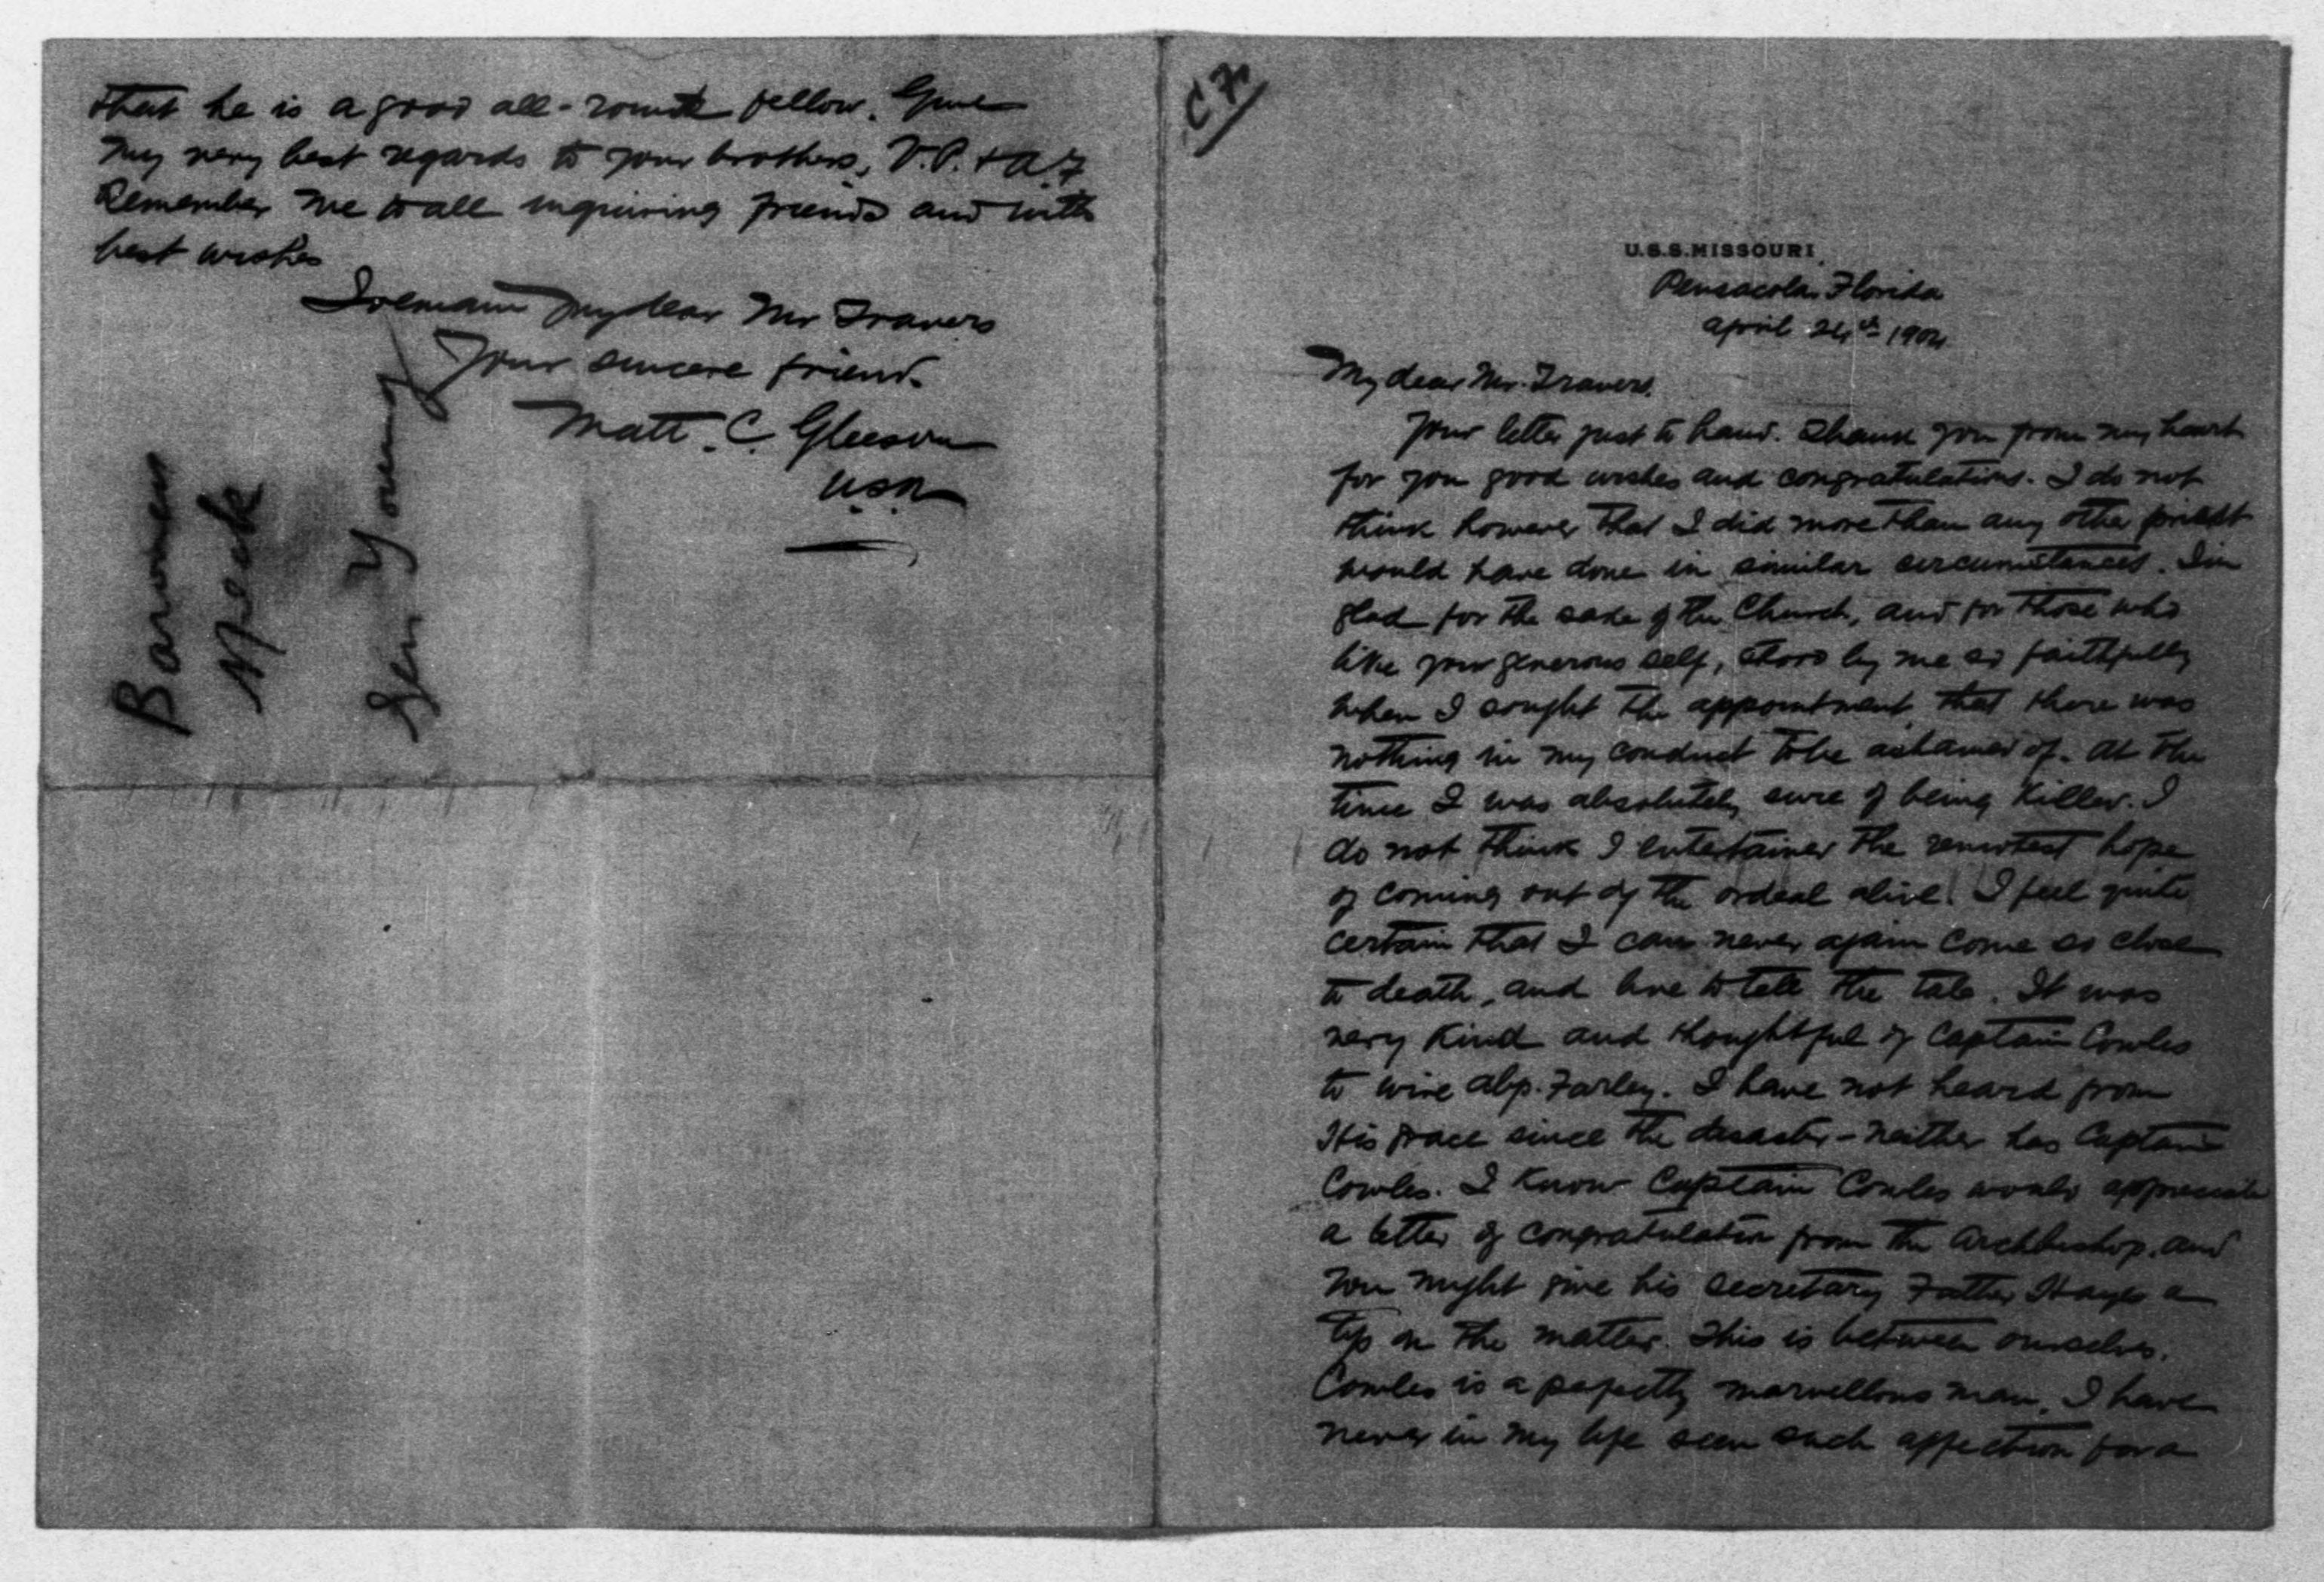 C F
U.S.S. MISSOURI.
Pensacola, Florida
April 24th 1904
My dear Mr. Travers.
Your letter just to hand. Thank you from my heart
for you good wishes and congratulations. I do not
think however that I did more than any other priest
would have done in similar circumstances. I'm
glad for the sake of the Church, and for those who
like your generous self, stood by me so faithfully
when I sought the appointment, that there was
nothing in my conduct to be ashamed of. At the
time I was absolutely sure of being killed. I
do not think I entertained the remotest hope
of coming out of the ordeal alive. I feel quite
certain that I can never again come so close
to death, and live to tell the tale. It was
very kind and thoughtful of Captain Cowles
to wire Abp. Farley. I have not heard from
His Grace since the disaster - neither has Captain
Cowles. I know Captain Cowles would appreciate
a letter of congratulation from the Archbishop, and
you might give his secretary Father Hayes a
tip on the matter. This is between ourselves.
Cowles is a perfectly marvellous man. I have
never in my life seen such affection for a
that he is a good all-round fellow. Give
my very best regards to your brothers, V.P. + A.F
Remember me to all inquiring friends and with
best wishes
I remain my dear Mr Travers
Your sincere friend.
Matt. C. Gleeson
U.S.N
Speck
Gen Young